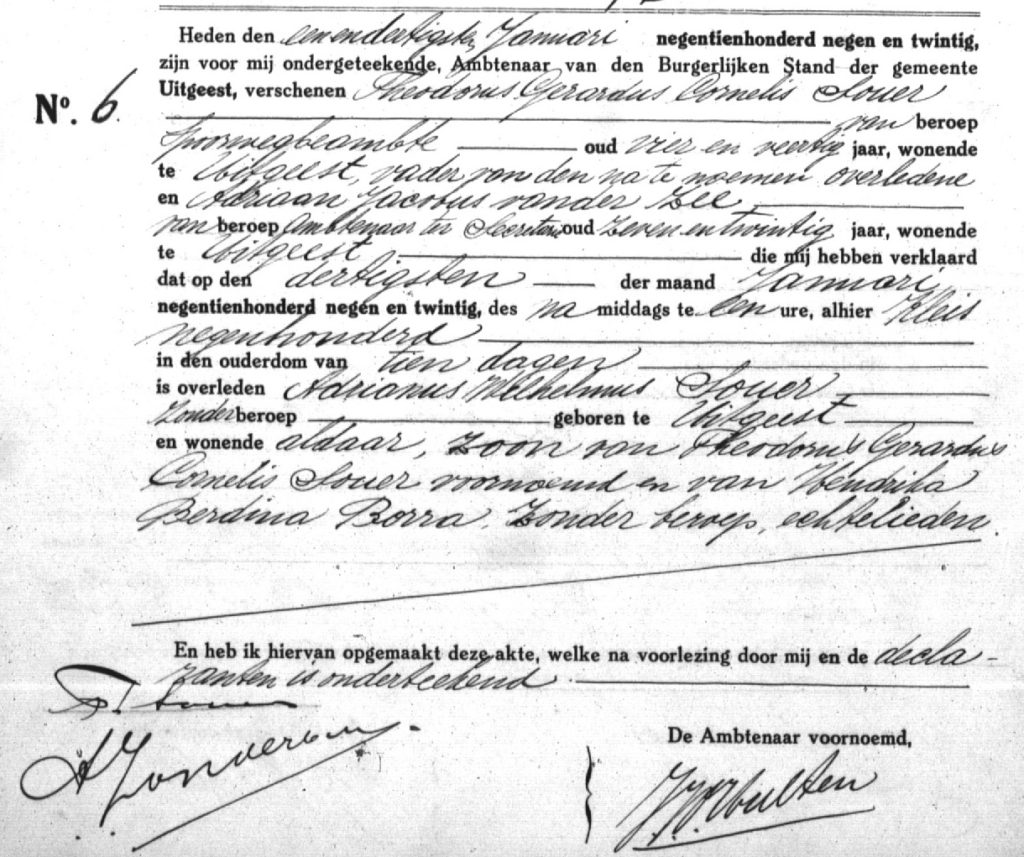 Heden den eenendertigsten Januari negentienhonderd negen en twintig,
zijn voor mij ondergeteekende, Ambtenaar van den Burgerlijken Stand der gemeente
Uitgeest, verschenen Theodorus Gerardus Cornelis Souer
No. 6.
van beroep
spoorwegbeambte oud vier en veertig jaar, wonende
te Uitgeest, vader van den na te noemen overledene
en Adriaan Jacobus van der Zee,
van beroep Ambtenaar ter Secretarie oud zeven en twintig jaar, wonende
te Uitgeest, die mij hebben verklaard
dat op den dertigsten der maand Januari,
negentienhonderd negen en twintig, des na middags te een ure, alhier Kleis
negenhonderd
in den ouderdom van tien dagen
is overleden Adrianus Wilhelmus Souer,
zonder beroep geboren te Uitgeest
en wonende aldaar, zoon van Theodorus Gerardus
Cornelis Souer voornoemd en van Hendrika
Berdina Borra, zonder beroep, echtelieden.
En heb ik hiervan opgemaakt deze akte, welke na voorlezing door mij en de decla-
ranten is onderteekend.
De Ambtenaar voornoemd,